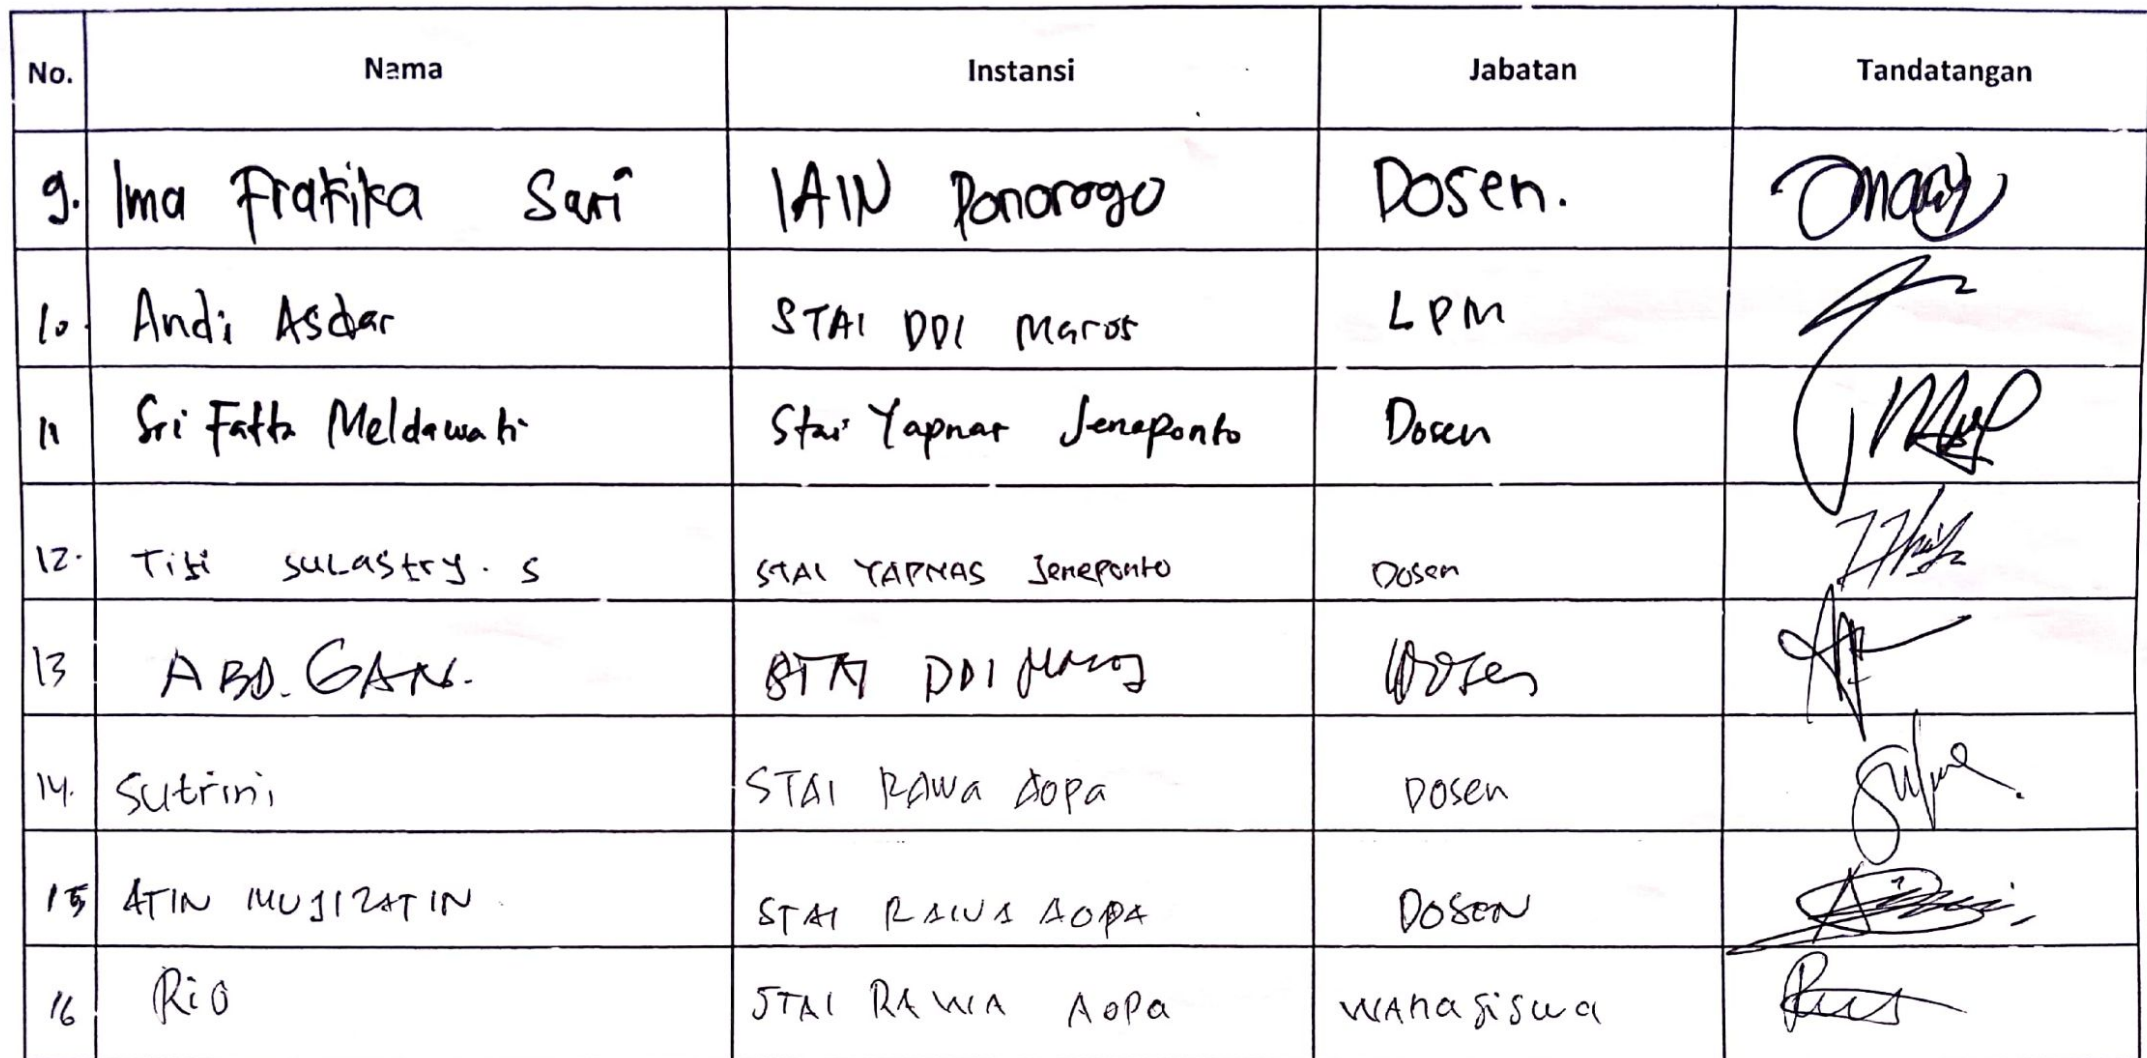 No. Nama Instansi Jabatan Tandatangan
9. Ima Frafika Sari IAIN Ponorogo Dosen.
10. Andi Asdar STAI DDI Maros LPM
11 Sri Fatta Meldawati Stai Yapnas Jeneponto Dosen
12. Titi suLastry. S STAI YAPNAS Jeneponto Dosen
13 ABD. GANI. STAI DDI Maros Dosen
14. Sutrini STAI RAWa Aopa Dosen
15 ATIN MUJIZATIN STAI RAWA AOPA DOSEN
16 Rio STAI RAWA AoPa Mahasiswa